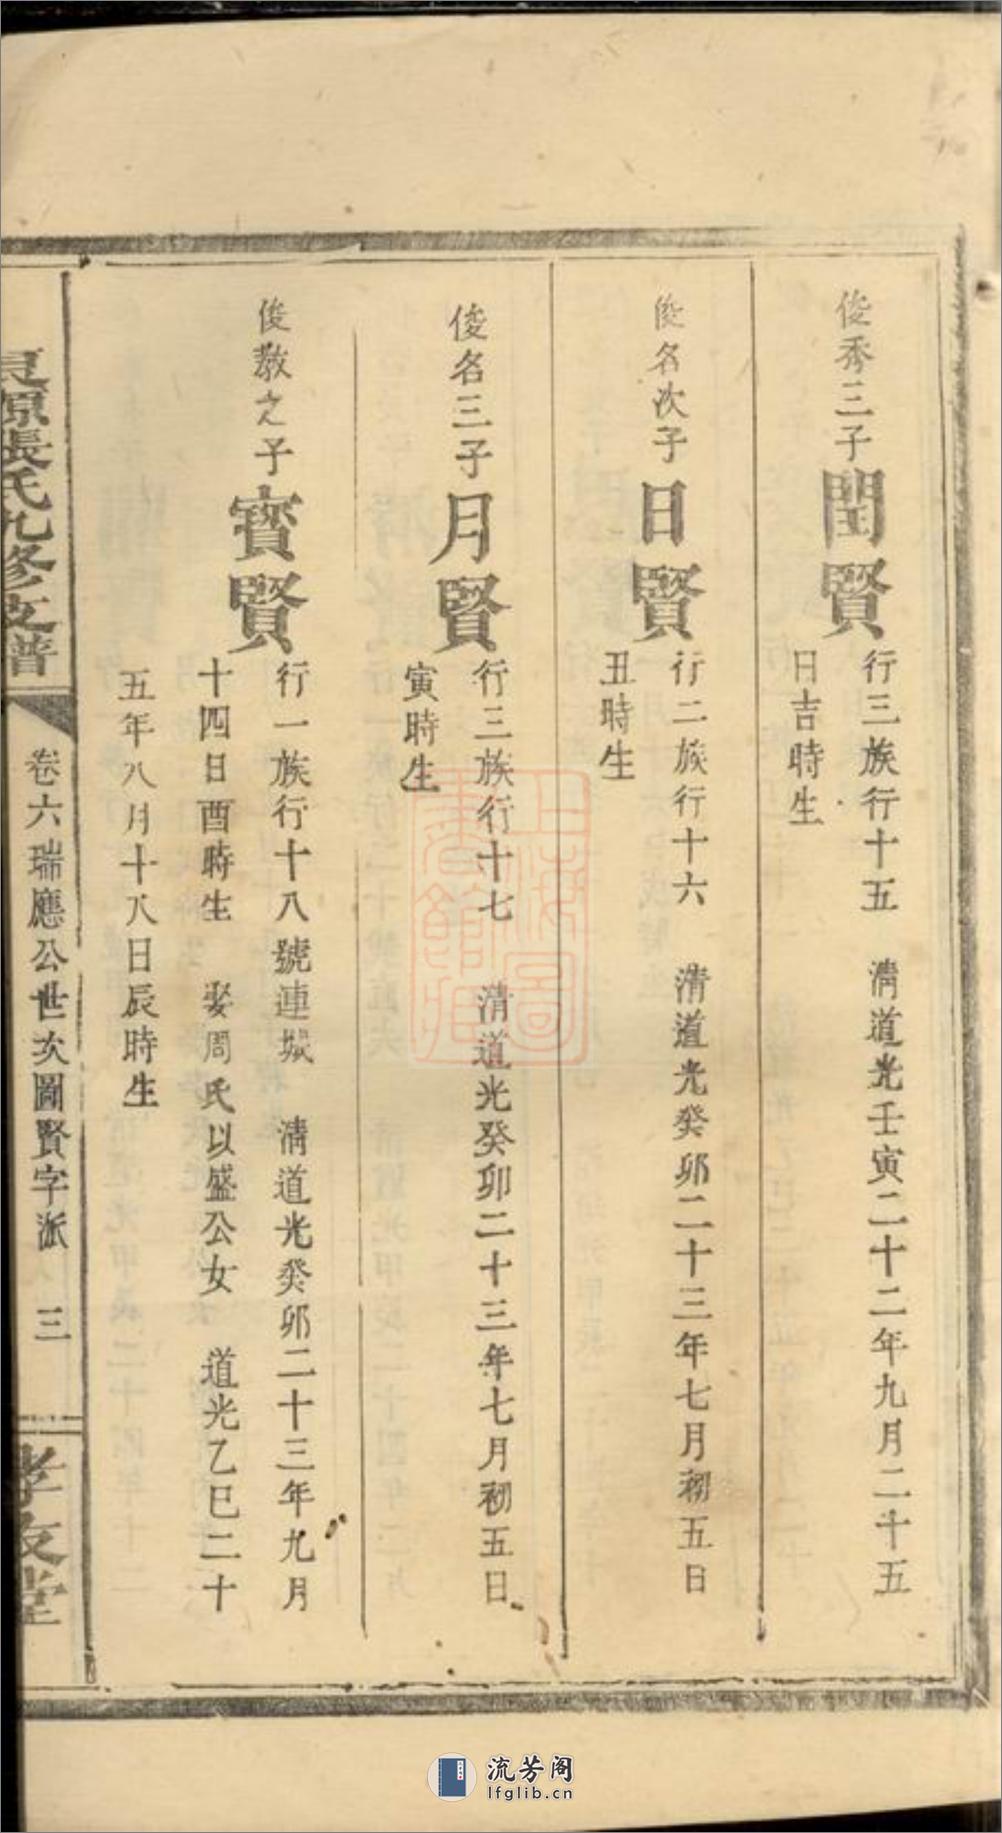 俊秀三子
閏賢
行三族行十五 清道光壬寅二十二年九月二十五
日吉時生
俊名次子
日賢
行二族行十六 清道光癸卯二十三年七月初五日
丑時生
俊名三子
月賢
行三族行十七 清道光癸卯二十三年七月初五日
寅時生
俊教之子
寳賢
行一族行十八號連城 清道光癸卯二十三年九月
十四日酉時生 娶周氏以盛公女 道光乙巳二十
五年八月十八日辰時生
張氏九修支譜
卷六瑞應公世次圖賢字派 三
孝友堂
上海圖書館藏
流芳阁
lfglib.cn